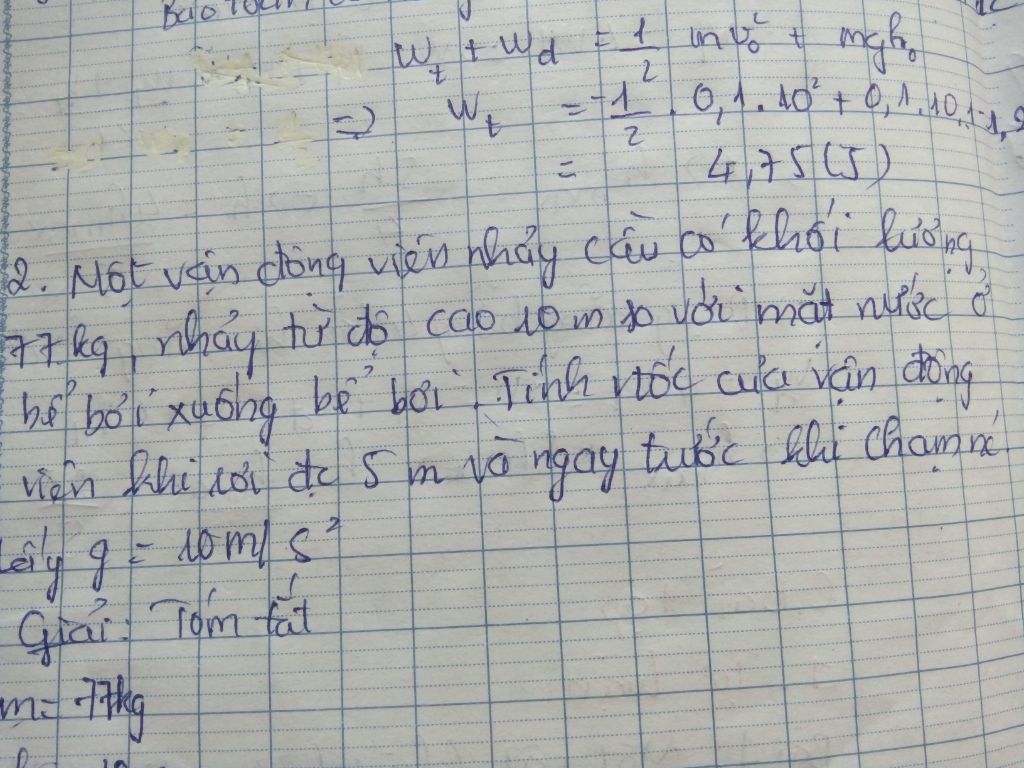 Bảo toàn
W_t + W_d = 1/2 mv₀² + mgh₀
=> W_t = -1/2 . 0,1 . 10² + 0,1 . 10 .
= 4,75 (J)
2. Một vận động viên nhảy cầu có khối lượng
77 kg, nhảy từ độ cao 10 m so với mặt nước ở
bể bơi xuống bể bơi. Tính vtốc của vận động
viên khi rơi đc 5 m và ngay trước khi chạm nc
Lấy g = 10 m/s²
Giải: Tóm tắt
m = 77kg